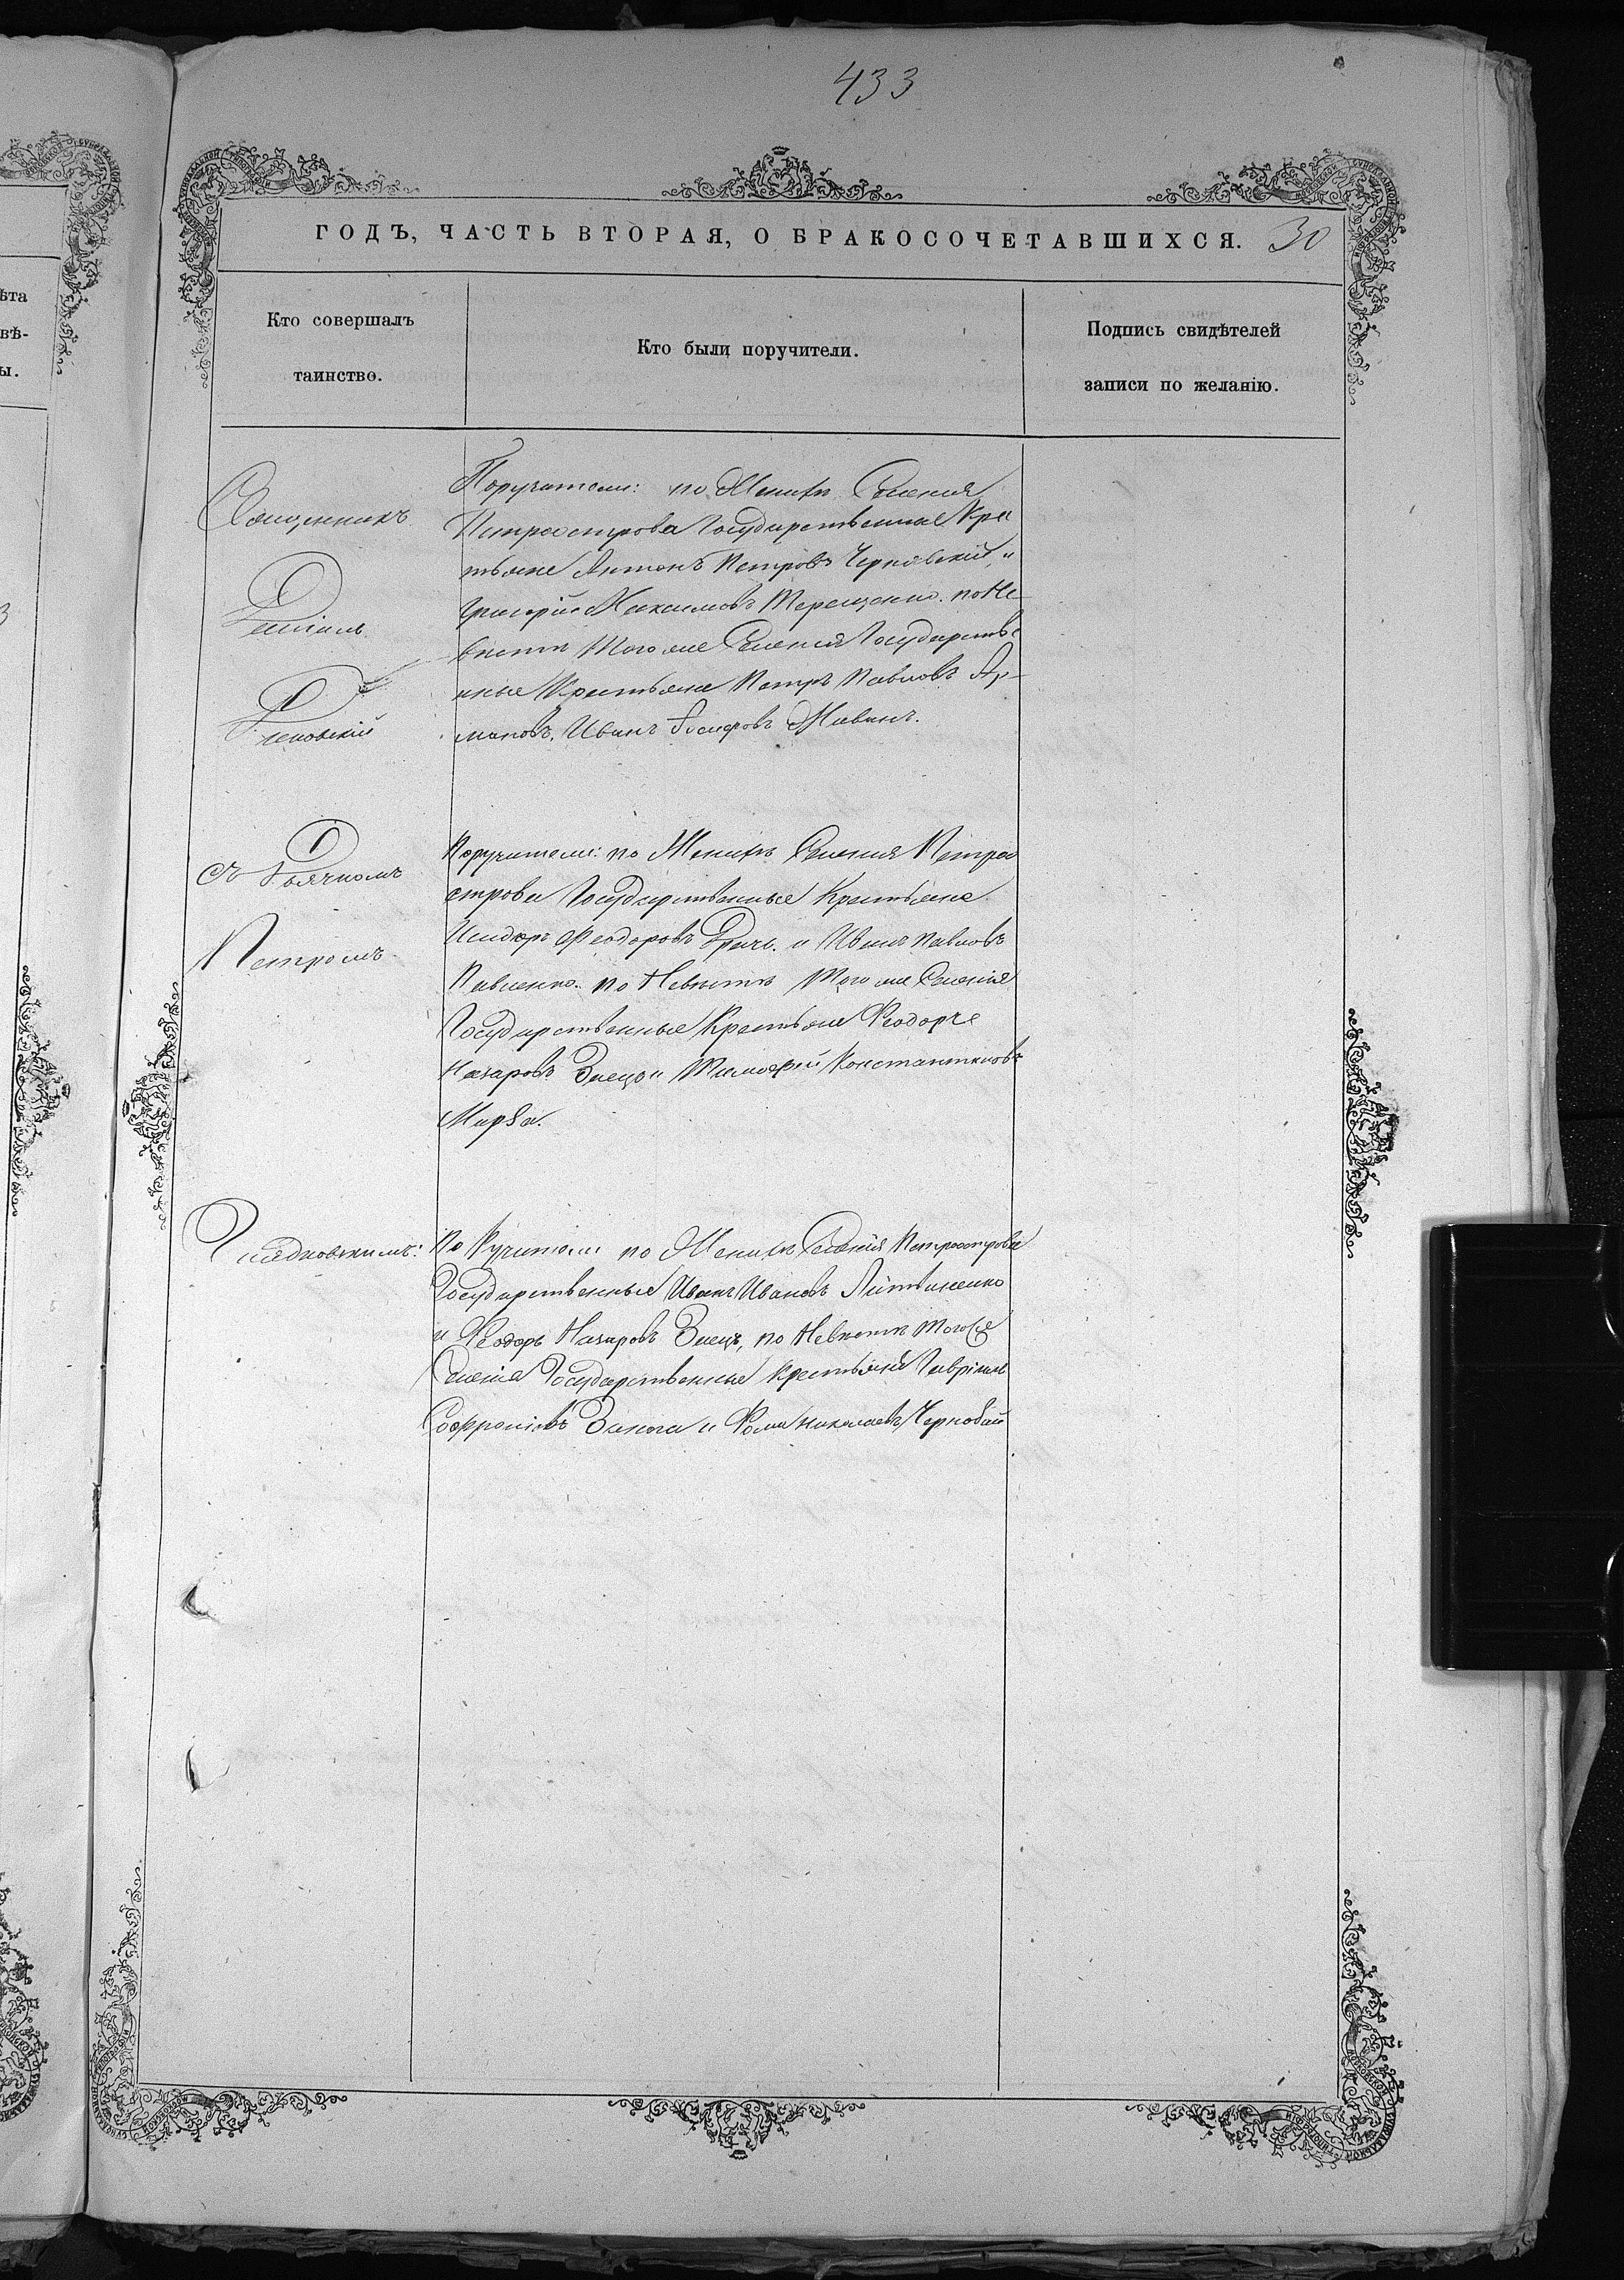 433
ГОДЪ, ЧАСТЬ ВТОРАЯ, О БРАКОСОЧЕТАВШИХСЯ. 30
ѣта
вѣ-
ы.
Кто совершалъ
таинство.
Кто были поручители.
Подпись свидѣтелей
записи по желанію.
Священникъ
Даніилъ
съ Дьячкомъ
Петромъ
Поручители: по Женихѣ Селенія
Петроострова Государственные Кре
стьяне Антонъ Петровъ Чернявскій, и
Григорій Максимовъ Терещенко. по Не
вѣстѣ Того же Селенія Государстве
нные Крестьяне Петръ Павловъ
Иванъ
Поручители: по Женихѣ Селенія Петро
острова Государственные Крестьяне
Исидоръ Феодоровъ и Иванъ Павловъ
Павленко. по Невѣстѣ Того же Селенія
Государственные Крестьяне Феодоръ
Назаровъ Заецъ и Тимофей Константиновъ
По Ручители по Женихѣ Селенія Петроострова
Государственные Иванъ Ивановъ Литвиненко
и Феодоръ Назаровъ Заецъ, по Невѣстѣ Того же
Селенія Государственные Крестьяне Гавріилъ
Софроніевъ и Фома Николаевъ